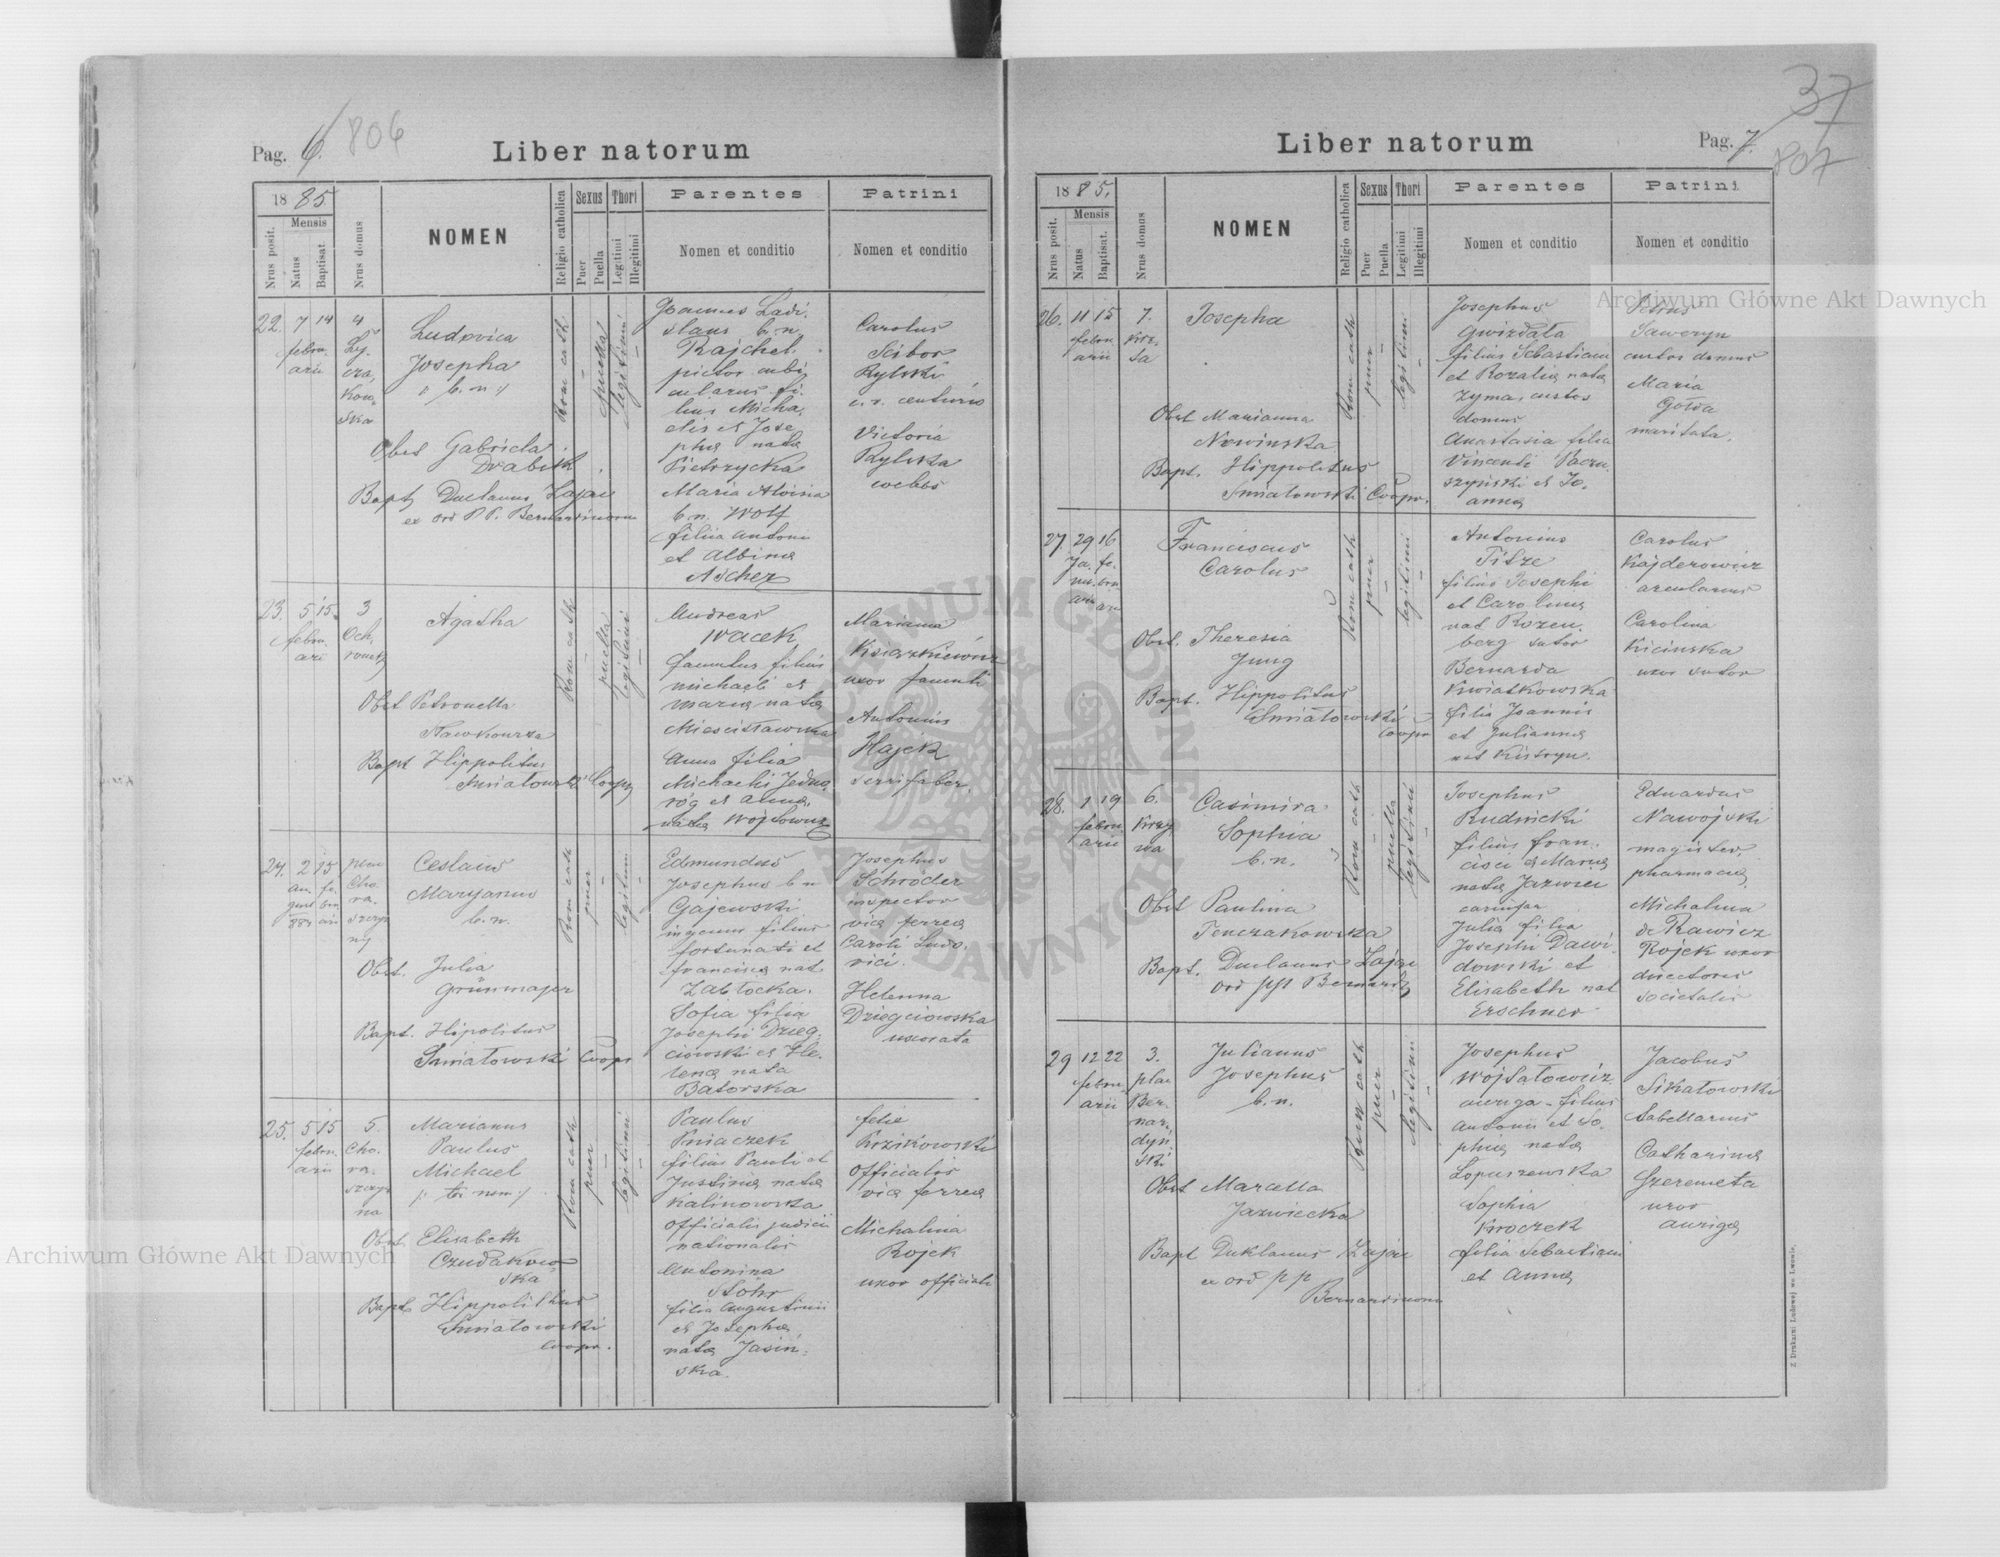 Pag. 6. 806
Liber natorum
1885
Mensis
Nrus posit.
Natus
Baptisat.
Nrus domus
NOMEN
Religio catholica
Sexus
Puer
Puella
Thori
Legitimi
Illegitimi
Parentes
Nomen et conditio
Patrini
Nomen et conditio
22. 7 14 4
febru
arii
Ly
cza
kow
ska
Ludovica
Josepha
b. n.
Obst Gabriela
Drabik
Bapt Duclanus Zając
ex ord P.P. Bernardinorum
Rom cath
puella
legitimi
Joannes Ladi
slaus b. n.
Rajchel
pictor cubi
cularius fi
lius Micha
elis et Jose
phae nata
Pietrzycka
Maria Aloisia
b. n. Wolf
filia Antoni
et Albina
Aschez
Carolus
Scibor
Rylski
c. r. centurio
Victoria
Rylska
coelebs
23. 5 15 3
febru
arii
Och
ronek
Agatha
Obst Petronella
Sawkowska
Bapt Hippolitus
Smiatowski Coop
Rom cath
puella
legitimi
Andreas
Wacek
famulus filius
michaeli et
maria nata
Miecisławska
Anna filia
Michaeli Jedno
róg et Anna
nata Wojtowicz
Marianna
Księżkiewicz
uxor famuli
Antonius
Hajek
serrifaber.
24. 2 15
au fe
gust bru
884 arii
plac
Cho
ra
szczyz
ny
Ceslaus
Maryanus
b. n.
Obst. Julia
Grünmajer
Bapt. Hipolitus
Smiatowski Coop
Rom cath
puer
legitimi
Edmundus
Josephus b n
Gajewski
filius
fortunati et
francisca nat
Zabłocka.
Sofia filia
Josephi Dzieg
ciowski et He
lena nata
Batorska
Josephus
Schröder
inspector
via ferrea
Caroli Ludo
vici.
Helenna
Dziegciowska
uxorata
25. 5 15 5.
febru
arii
Cho
ra
szczyz
na
Marianus
Paulus
Michael
tri nom
Obst Elisabeth
Czudakow
ska
Bapt Hippolithus
Smiatowski
Coopr.
Rom cath
puer
legitimi
Paulus
Pniaczek
filius Pauli et
Justina nata
Kalinowska
officialis judicii
nationalis
Antonina
Stöhr
filia Augustinii
et Josepha
nata Jasiń
ska.
felix
Krzikowski
officialis
via ferrea
Michalina
Rojek
uxor officiali
37
Pag. 7. 807
Liber natorum
1885.
Mensis
Nrus posit.
Natus
Baptisat.
Nrus domus
NOMEN
Religio catholica
Sexus
Puer
Puella
Thori
Legitimi
Illegitimi
Parentes
Nomen et conditio
Patrini
Nomen et conditio
26. 11 15 7.
febru
arii
Josepha
Obst Marianna
Nowinska
Bapt. Hippolitus
Smiatowski Coopr.
Rom cath
puer
legitimi
Josephus
Gwizdała
filius Sebastiani
et Rozalia nata
Zyma, custos
domus
Anastasia filia
Vincenti
szyński et Jo
anna
Petrus
Saweryn
custos domus
Maria
Gołda
maritata.
27. 29 16
Ja fe
nu bru
arii arii
Franciscus
Carolus
Obst. Theresia
Jung
Bapt. Hippolitus
Smiatowski
Coopr
Rom cath
puer
legitimi
Antonius
Titze
filius Josephi
et Carolina
nat Rozen
berg sutor
Bernarda
Kwiatkowska
filia Joannis
et Julianna
nat Kistryn.
Carolus
Kajderowicz
arcularius
Carolina
Kicinska
uxor sutor
28. 1 19 6.
febru
arii
Krzy
wa
Casimira
Sophia
b. n.
Obst Paulina
Tenczakowska
Bapt. Duclanus Zając
ord pp Bernard
Rom cath
puella
legitimi
Josephus
Rudnicki
filius fran
cisci et Maria
nata Jazwiec
Julia filia
Josephi Dawi
dowski et
Elisabeth nat
Erschner
Eduardus
Nawojski
magister
pharmacia
Michalina
de Rawicz
Rojek uxor
directoris
societatis
29 12 22 3.
febru
arii
plac
Ber
nar
dyń
ski
Julianus
Josephus
b. n.
Obst Marcella
Jazwiecka
Bapt Duklanus Zając
ex ord pp
Bernardinorum
Rom cath
puer
legitimi
Josephus
Wojtatowicz
auriga filius
Antonii et So
phia nata
Lopuszewska
Sophia
Kroczek
filia Sebastiani
et Anna
Jacobus
Sikatowski
tabellarius
Catharina
Szeremeta
uxor
auriga
Z Drukarni Ludowej we Lwowie.
Archiwum Główne Akt Dawnych
Archiwum Główne Akt Dawnych
ARCHIWUM GŁÓWNE AKT DAWNYCH